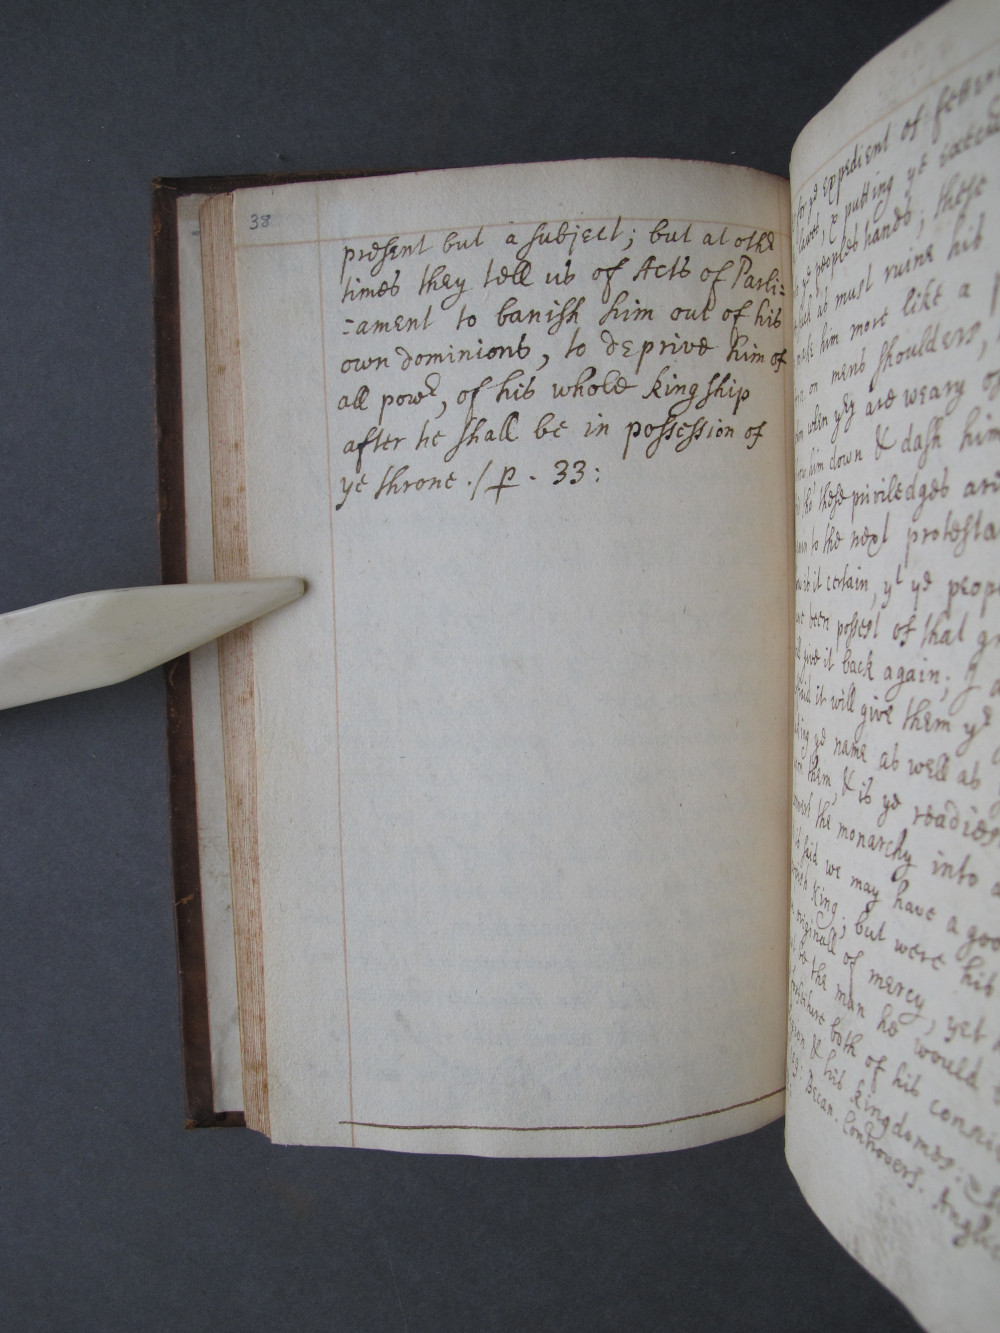 38
present but a subject; but at othr
times they tell us of Acts of Parli:
:ament to banish him out of his
own dominions, to deprive him of
all powr, of his whole kingship
after he shall be in possession of
ye throne ./ p . 33:
for ye expedient of
putting ye
ye peoples hands; these
must ruine his
him more like a
on mens shoulders,
when yey are weary of
him down & dash him
these priviledges are
to the next protesta
it certain, yt ye peop
been possest of that
give it back again;
it will give them ye
ye name as well as
them, & is ye readies
the monarchy into a
said we may have a good
King; but were his
originall of mercy, yet
the man he would
both of his
& his kingdomes:
Decan. Controvers. Anglic